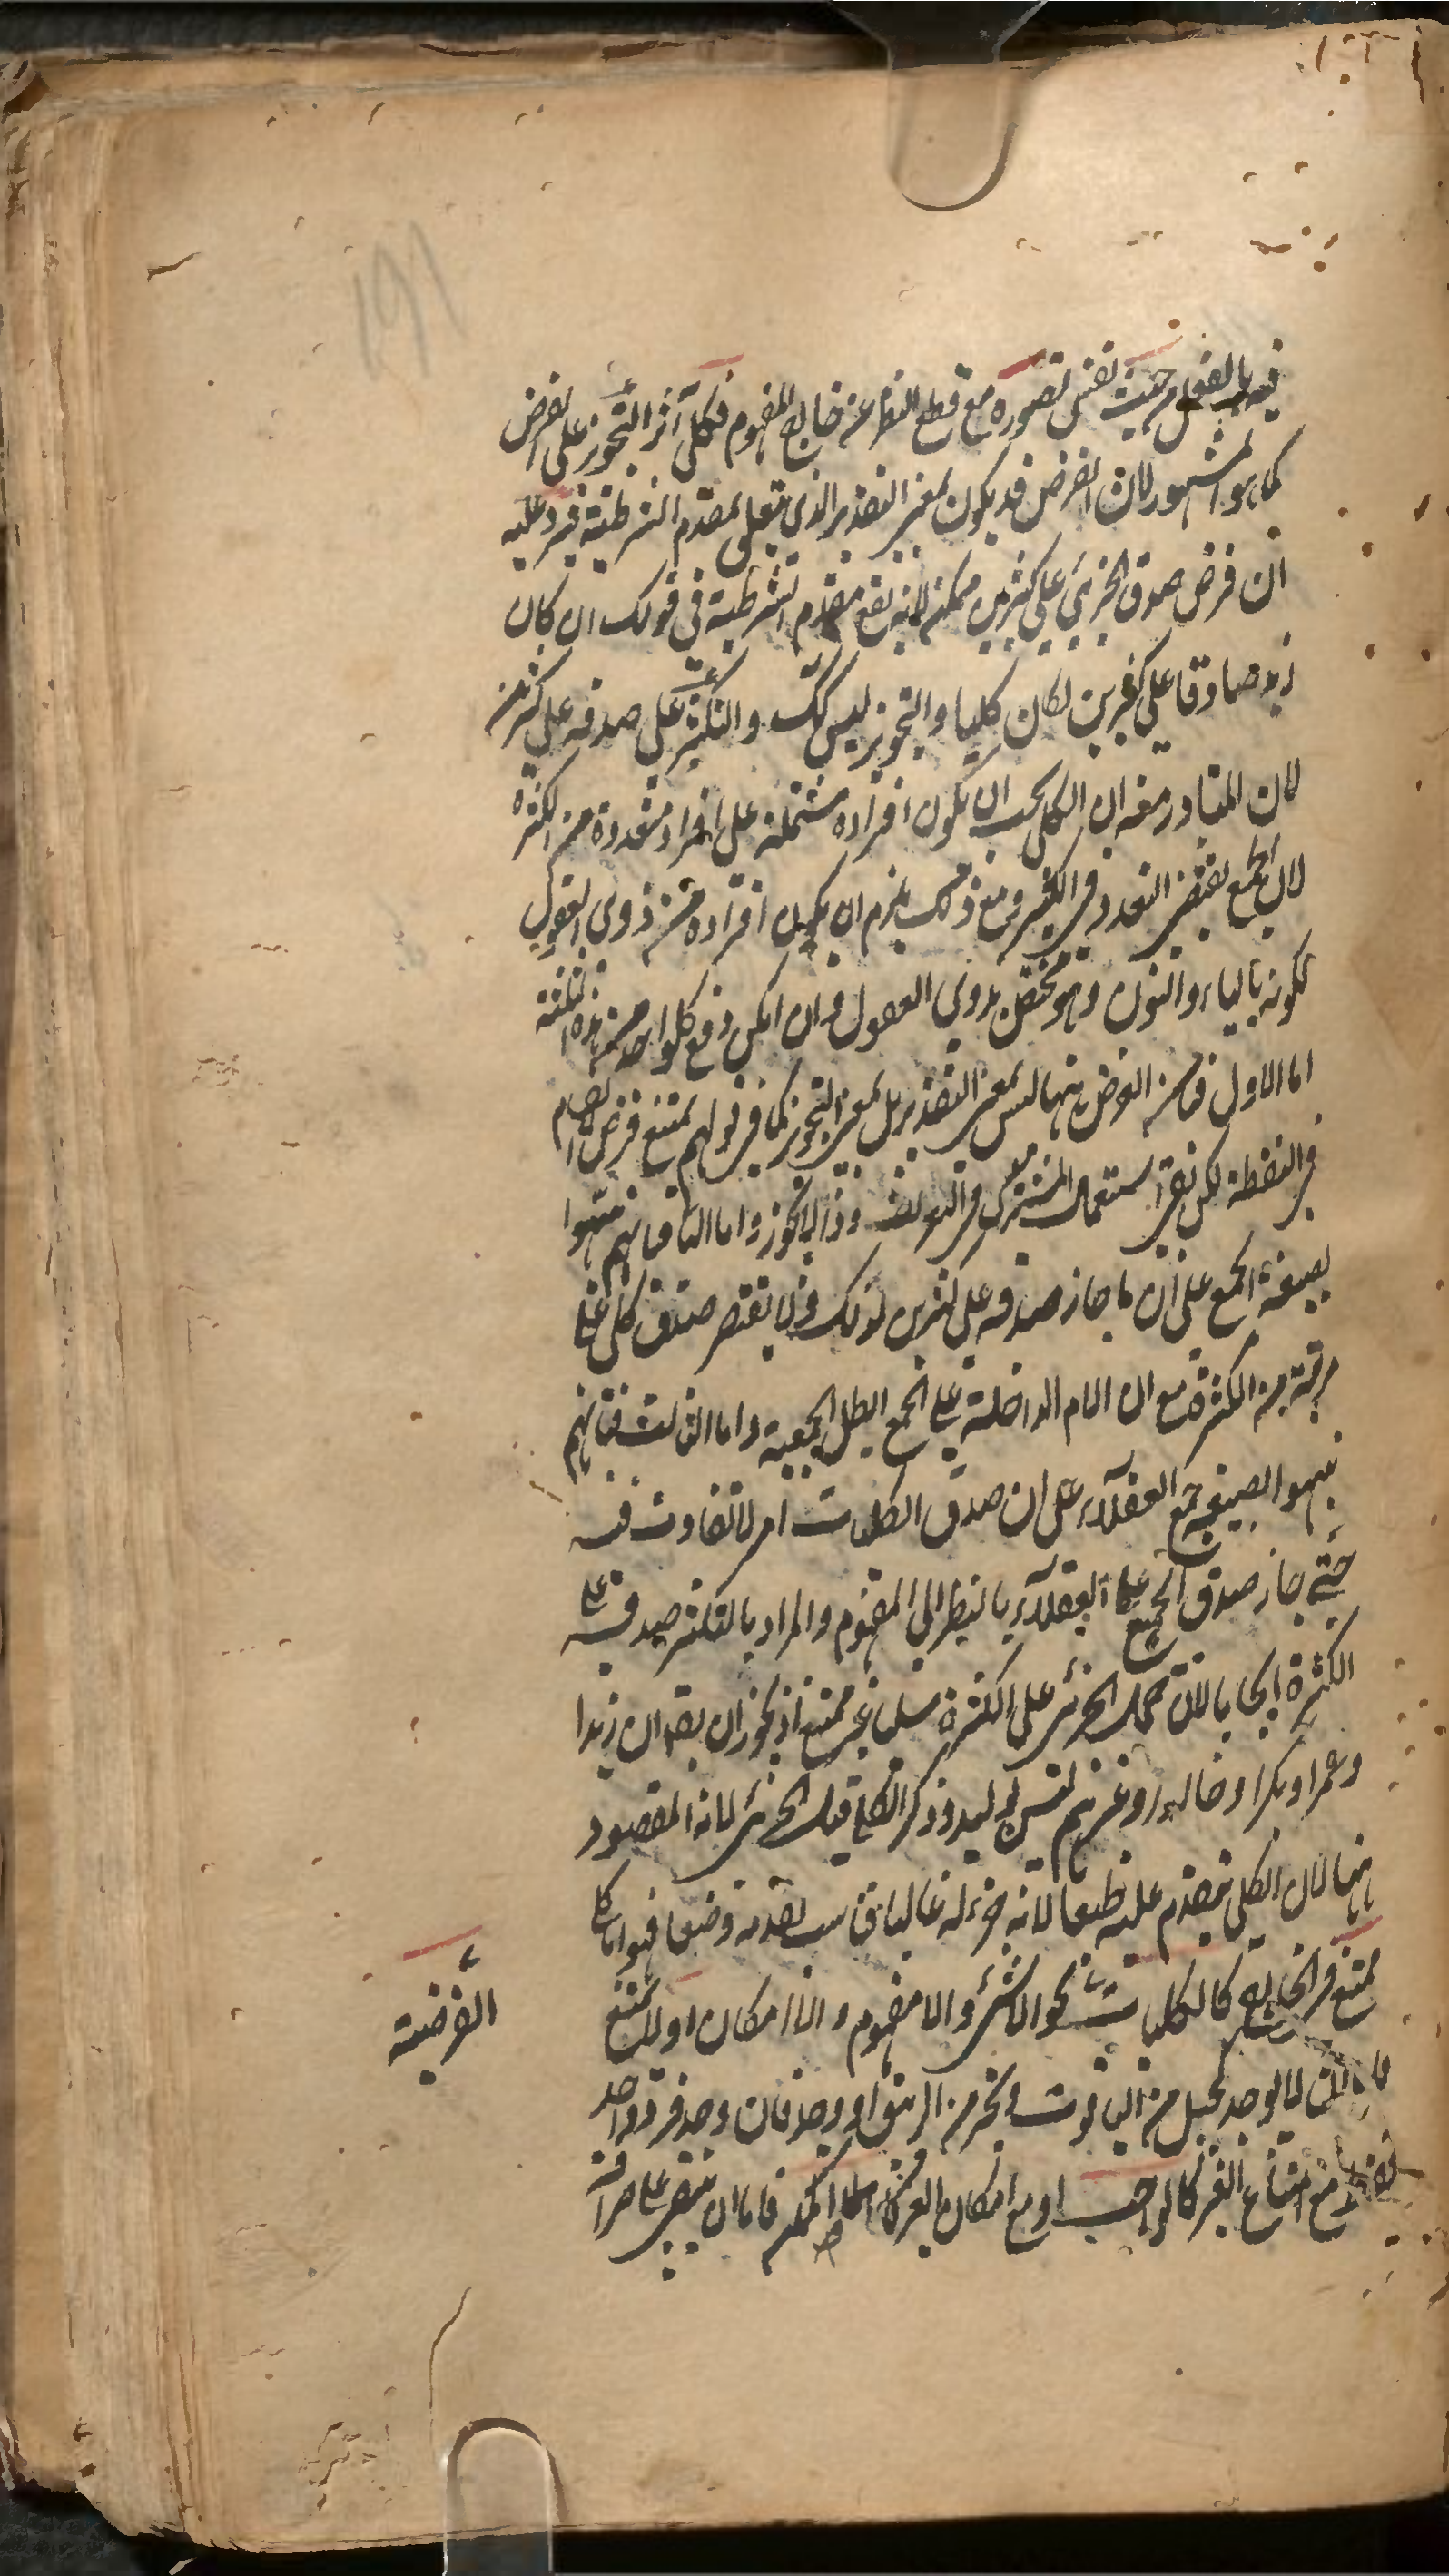 فيه بالفعل من حيث نفس تصوره مع قطع النظر عن خارج المفهوم فكلي آثر التجوز على الفرض
كما هو المشهور لان الفرض قد يكون بمعنى التقدير الذي يتعلق بمقدم الشرطية فيرد عليه
ان فرض صدق الجزئي على كثيرين ممكن لانه يقع مقدم الشرطية في قولك ان كان
زيد صادقا على كثيرين لكان كليا والتجويز ليس كك والتكثر على صدقه على كثيرين
لان المتبادر منه ان الكلي يجب ان يكون افراده مشتملة على افراد متعددة من الكثرة
لان الجمع يقتضى التعدد في الكثير ومع ذلك يلزم ان يكون افراده من ذوى العقول
لكونه بالياء والنون وهو مختص بذوى العقول وان امكن دفع كل واحد من هذه الثلثة
اما الاول فبان الفرض ههنا ليس بمعنى التقدير بل بمعنى التجويز كما في قولهم يمتنع فرض انقسام
في النقطة لكن بقى استعمال المشترك في التعريف وذا لا يجوز واما الثاني فبانهم نبهوا
بصيغة الجمع على ان ما جاز صدقه على كثيرين لذلك ولا يقتصر صدق كلي على
مرتبة من الكثرة مع ان اللام الداخلة على الجمع ابطل الجمعية واما الثالث فبانهم
نبهوا بصيغة جمع العقلاء على ان صدق الكليات امر لا تفاوت فيه
حتى جاز صدق الجميع على العقلاء بالنظر الى المفهوم والمراد بالتكثر صدقه على
الكثرة ايجابا لان حمل الجزئي على الكثرة سلبا غير ممتنع اذ يجوز ان يقال ان زيدا
وعمرا وبكرا وخالدا وغيرهم ليس بوليد وذكر الكلي قبل الجزئي لانه المقصود
ههنا لان الكلي يتقدم عليه طبعا لانه جزء له غالبا فناسب تقدمه وضعا فهو اما كلي
يمتنع في الخارج كالكليات نحو اللاشئ واللامفهوم واللاامكان او لا يمتنع
الفرضية
فاما ان لا يوجد كجبل من الياقوت وبحر من الزيبق او وجد فان وجد فرد واحد
فقط مع امتناع الغير كالواجب او مع امكان الغير كالشمس الممكن فاما ان يبقى على صرافة